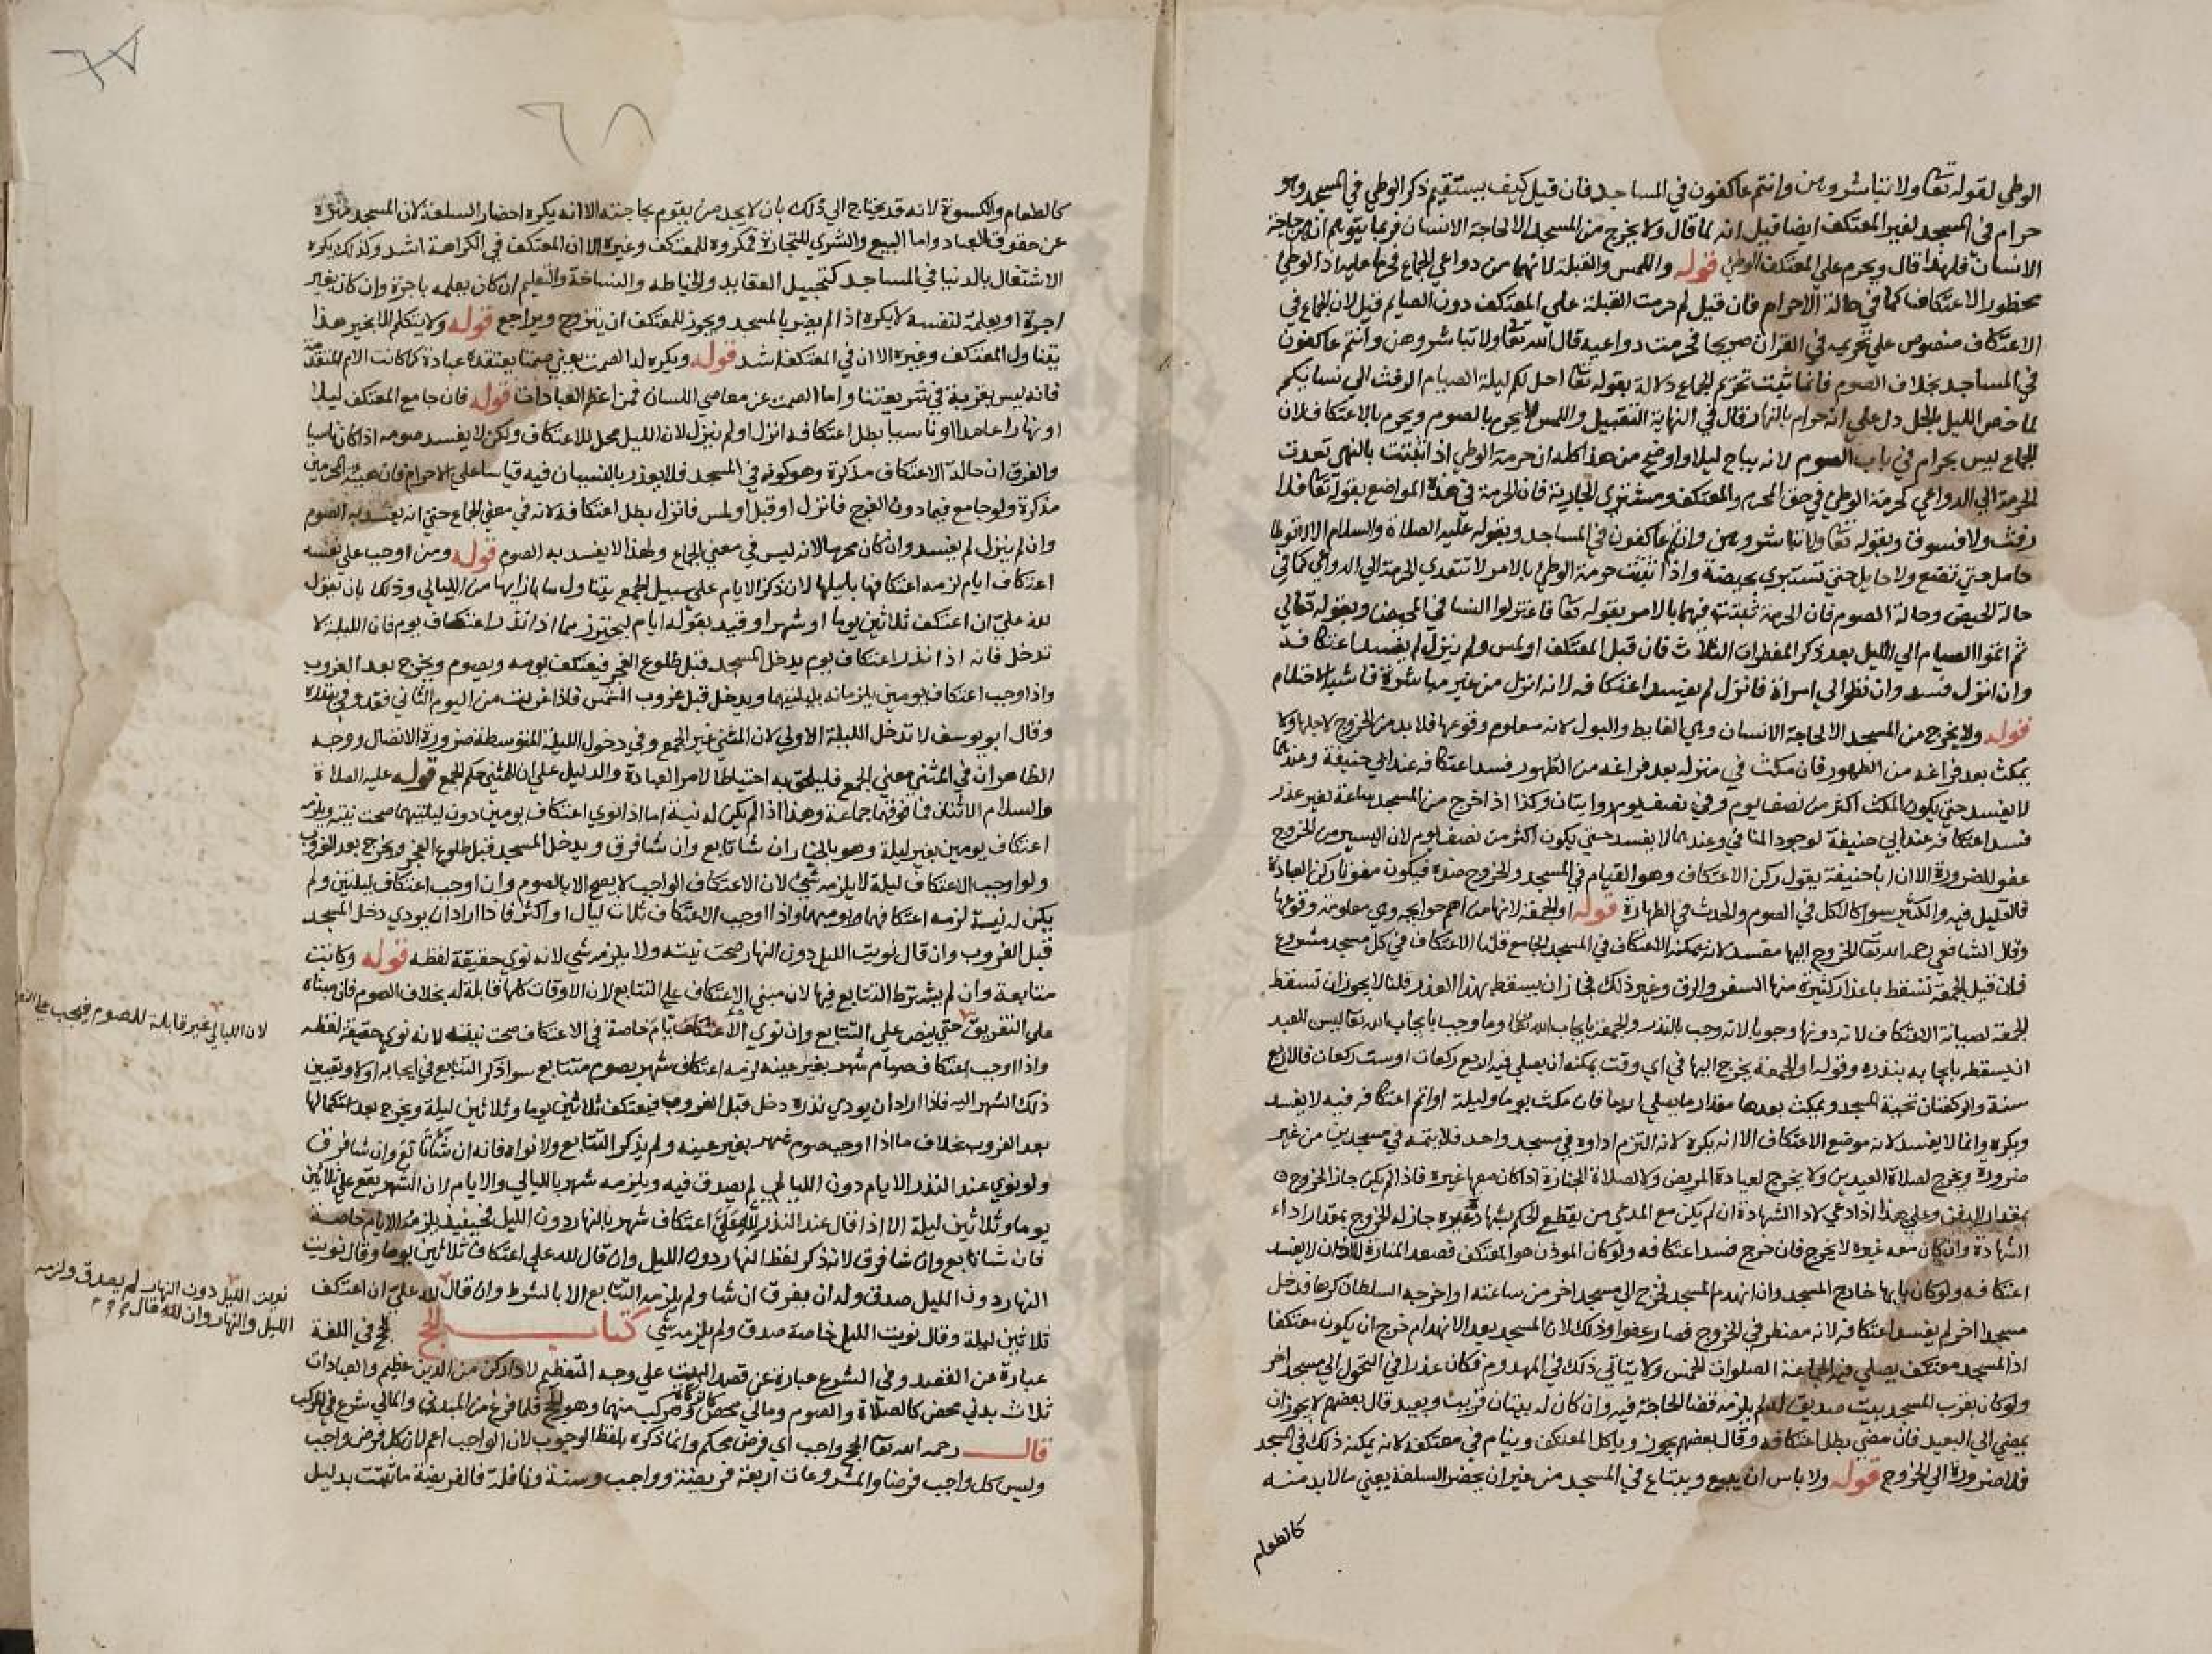 الوطي لقوله تعا ولا تباشروهن وانتم عاكفون في المساجد فان قيل كيف يستقيم ذكر الوطي في المسجد وهو
حرام في المسجد لغير المعتكف ايضا قيل انه لما قال ولا يخرج من المسجد الا لحاجة الانسان فربما يتوهم ان من حاجة
الانسان فلهذا قال ويحرم علي المعتكف الوطي قوله واللمس والقبلة لانهما من دواعي الجماع فحرما عليه اذ الوطي
محظور الاعتكاف كما في حالة الاحرام فان قيل لم حرمت القبلة علي المعتكف دون الصايم قيل لان الجماع في
الاعتكاف منصوص علي تحريمه في القران صريحا فحرمت دواعيه قال الله تعا ولا تباشروهن وانتم عاكفون
في المساجد بخلاف الصوم فانما يثبت تحريم الجماع دلالة بقوله تعا احل لكم ليلة الصيام الرفث الي نسايكم
لما خص الليل بالحل دل علي انه حرام بالنهار قال في النهاية التقبيل واللمس لا يحرم بالصوم ويحرم بالاعتكاف لان
الجماع ليس بحرام في باب الصوم لانه يباح ليلا واوضح من هذا كله ان حرمة الوطي اذا ثبتت بالنهي تعدت
الحرمة الي الدواعي كحرمة الوطي في حق المحرم والمعتكف ومشتري الجارية فان الحرمة في هذه المواضع بقوله تعا فلا
رفث ولا فسوق وبقوله تعا ولا تباشروهن وانتم عاكفون في المساجد وبقوله عليه الصلاة والسلام الا لا توطا
حامل حتي تضع ولا حايل حتي تستبري بحيضة واذا ثبتت حرمة الوطي بالامر لا تتعدي الحرمة الي الدواعي كما في
حالة الحيض وحالة الصوم فان الحرمة ثبتت فيهما بالامر بقوله تعا فاعتزلوا النسا في المحيض وبقوله تعالي
ثم اتموا الصيام الي الليل بعد ذكر المفطرات الثلاث فان قبل المعتكف او لمس ولم ينزل لم يفسد اعتكافه
وان انزل فسد وان نظر الي امراة فانزل لم يفسد اعتكافه لانه انزل من غير مباشرة فاشبه الاحتلام
قوله ولا يخرج من المسجد الا لحاجة الانسان وهي الغايط والبول لانه معلوم وقوعها فلا بد من الخروج لاجلها ولا
يمكث بعد فراغه من الطهور فان مكث في منزله بعد فراغه من الطهور فسد اعتكافه عند ابي حنيفة وعندهما
لا يفسد حتي يكون المكث اكثر من نصف يوم وفي نصف يوم روايتان وكذا اذا خرج من المسجد ساعة لغير عذر
فسد اعتكافه عند ابي حنيفة لوجود المنافي وعندهما لا يفسد حتي يكون اكثر من نصف يوم لان اليسير من الخروج
عفو للضرورة الا ان ابا حنيفة يقول ركن الاعتكاف وهو القيام في المسجد والخروج ضده فيكون مفوتا ركن العبادة
فالقليل فيه والكثير سوا كالاكل في الصوم والحدث في الطهارة قوله او الجمعة لانها من اهم حوايجه وهي معلومة وقوعها
وقال الشافعي رحمه الله تعا الخروج اليها مفسد لانه يمكنه الاعتكاف في المسجد الجامع قلنا الاعتكاف في كل مسجد مشروع
فان قيل الجمعة تسقط باعذار كثيرة منها السفر والرق وغير ذلك فجاز ان يسقط بهذا العذر قلنا لا يجوز ان تسقط
الجمعة لصيانة الاعتكاف لانه دونها وجوبا لانه وجب بالنذر والجمعة بايجاب الله تعا وما وجب بايجاب الله تعا ليس للعبد
ان يسقطه بايجابه بنذره وقوله او الجمعة يخرج اليها في اي وقت يمكنه ان يصلي فيه اربع ركعات او ست ركعات فالاربع
سنة والركعتان تحية المسجد ويمكث بعدها مقدار ما يصلي اربعا فان مكث يوما وليلة او اتم اعتكافه فيه لا يفسد
ويكره وانما لا يفسد لانه موضع الاعتكاف الا انه يكره لانه التزم اداوه في مسجد واحد فلا يتمه في مسجدين من غير
ضرورة ويخرج لصلاة العيدين ولا يخرج لعيادة المريض ولا لصلاة الجنازة اذا كان معها غيره فاذا لم يكن جاز الخروج
بمقدار الدفن وعلي هذا اذا دعي لاداء الشهادة ان لم يكن مع المدعي من يقطع الحكم بشهادة غيره جاز له الخروج بمقدار اداء
الشهادة وان كان معه غيره لا يخرج فان خرج فسد اعتكافه ولو كان الموذن هو المعتكف فصعد المنارة للاذان لا يفسد
اعتكافه ولو كان بابها خارج المسجد وان انهدم المسجد فخرج الي مسجد اخر من ساعته او اخرجه السلطان كرها فدخل
مسجدا اخر لم يفسد اعتكافه لانه مضطر في الخروج فصار عفوا وذلك لان المسجد بعد الانهدام خرج ان يكون معتكفا
اذ المسجد معتكف يصلي فيه الجماعة الصلوات الخمس ولا يتاتي ذلك في المهدوم فكان عذرا في التحول الي مسجد اخر
ولو كان بقرب المسجد بيت صديق له لم يلزمه قضا الحاجة فيه وان كان له بيتان قريب وبعيد قال بعضهم لا يجوز ان
يمضي الي البعيد فان مضي بطل اعتكافه وقال بعضهم يجوز وياكل المعتكف وينام في معتكفه لانه يمكنه ذلك في المسجد
فلا ضرورة الي الخروج قوله ولا باس ان يبيع ويبتاع في المسجد من غير ان يحضر السلعة يعني ما لا بد منه
كالطعام
٦٨
كالطعام والكسوة لانه قد يحتاج الي ذلك بان لا يجد من يقوم بحاجته الا انه يكره احضار السلعة لان المسجد منزه
عن حقوق العباد واما البيع والشري للتجارة فمكروه للمعتكف وغيره الا ان المعتكف في الكراهة اشد وكذلك يكره
الاشتغال بالدنيا في المساجد كتحبيل العقايد والخياطه والنساخة والتعليم ان كان يعلمه باجرة وان كان بغير
اجرة او يعلمه لنفسه لا يكره اذا لم يضر بالمسجد ويجوز للمعتكف ان يتزوج ويراجع قوله ولا يتكلم الا بخير هذا
يتناول المعتكف وغيره الا ان في المعتكف اشد قوله ويكره له الصمت يعني صمتا يعتقده عبادة كما كانت الامم المتقدمة
فانه ليس بقربة في شريعتنا واما الصمت عن معاصي اللسان فمن اعظم العبادات قوله فان جامع المعتكف ليلا
او نهارا عامدا او ناسيا بطل اعتكافه انزل او لم ينزل لان الليل محل للاعتكاف ولكن لا يفسد صومه اذا كان ناسيا
والفرق ان حالة الاعتكاف مذكرة وهو كونه في المسجد فلا يعذر بالنسيان فيه قياسا علي الاحرام فان هيئة المحرمين
مذكرة ولو جامع فيما دون الفرج فانزل او قبل او لمس فانزل بطل اعتكافه لانه في معني الجماع حتي انه يفسد به الصوم
وان لم ينزل لم يفسد وان كان محرما لانه ليس في معني الجماع ولهذا لا يفسد به الصوم قوله ومن اوجب علي نفسه
اعتكاف ايام لزمه اعتكافها بلياليها لان ذكر الايام علي سبيل الجمع يتناول ما بازايها من الليالي وذلك بان يقول
لله علي ان اعتكف ثلاثين يوما او شهرا وقيد بقوله ايام ليحترز مما اذا نذر اعتكاف يوم فان الليلة لا
تدخل فانه اذا نذر اعتكاف يوم يدخل المسجد قبل طلوع الفجر فيعتكف يومه ويصوم ويخرج بعد الغروب
واذا اوجب اعتكاف يومين يلزمانه بليلتيهما ويدخل قبل غروب الشمس فاذا غربت من اليوم الثاني فقد وفي بنذره
وقال ابو يوسف لا تدخل الليلة الاولي لان المثني غير الجمع وفي دخول الليلة المتوسطة ضرورة الاتصال ووجه
الظاهر ان في المثني معني الجمع فيلحق به احتياطا لامر العبادة والدليل علي ان للمثني حكم الجمع قوله عليه الصلاة
والسلام الاثنان فما فوقهما جماعة وهذا اذا لم يكن له نية اما اذا نوي اعتكاف يومين دون ليلتيهما صحت نيته ويلزمه
اعتكاف يومين بغير ليلة وهو بالخيار ان شا تابع وان شا فرق ويدخل المسجد قبل طلوع الفجر ويخرج بعد الغروب
ولو اوجب الاعتكاف ليلة لا يلزمه شيء لان الاعتكاف الواجب لا يصح الا بالصوم وان اوجب اعتكاف ليلتين ولم
يكن له نية لزمه اعتكافهما ويوميهما واذا اوجب الاعتكاف ثلاث ليال او اكثر فاذا اراد ان يودي دخل المسجد
قبل الغروب وان قال نويت الليل دون النهار صحت نيته ولا يلزمه شي لانه نوي حقيقة لفظه قوله وكانت
متتابعة وان لم يشترط التتابع فيها لان مبني الاعتكاف علي التتابع لان الاوقات كلها قابلة له بخلاف الصوم فان مبناه
علي التفريق حتي ينص علي التتابع وان نوي الاعتكاف بايام خاصة في الاعتكاف صحت نيته لانه نوي حقيقة لفظه
لان الليالي غير قابلة للصوم فيجب علي
واذا اوجب اعتكاف صيام شهر بغير عينه لزمه اعتكاف شهر بصوم متتابع سوا ذكر التتابع في ايجابه او لا وتعيين
ذلك الشهر اليه فاذا اراد ان يودي نذره دخل قبل الغروب فيعتكف ثلاثين يوما وثلاثين ليلة ويخرج بعد استكمالها
بعد الغروب بخلاف ما اذا اوجب صوم شهر بغير عينه ولم يذكر التتابع ولا نواه فانه ان شا تابع وان شا فرق
ولو نوي عند النذر الايام دون الليالي لم يصدق فيه ويلزمه شهر بالليالي والايام لان الشهر يقع علي ثلاثين
يوما وثلاثين ليلة الا اذا قال عند النذر لله علي اعتكاف شهر بالنهار دون الليل فحينيذ يلزمه الايام خاصة
فان شا تابع وان شا فرق لانه ذكر لفظ النهار دون الليل وان قال لله علي اعتكاف ثلاثين يوما وقال نويت
النهار دون الليل صدق وله ان يفرق ان شا ولم يلزمه التتابع الا بالشرط وان قال لله علي ان اعتكف
نويت الليل دون النهار لم يصدق ولزمه
الليل والنهار وان لله قال
ثلاثين ليلة وقال نويت الليل خاصة صدق ولم يلزمه شي كتاب الحج الحج في اللغة
عبارة عن القصد وفي الشرع عبارة عن قصد البيت علي وجه التعظيم لاداء ركن من الدين عظيم والعبادات
ثلاث بدني محض كالصلاة والصوم ومالي محض كالزكاة ومركب منهما وهو الحج فلما فرغ من البدني والمالي شرع في المركب
قال رحمه الله تعا الحج واجب اي فرض محكم وانما ذكره بلفظ الوجوب لان الواجب اعم لان كل فرض واجب
وليس كل واجب فرضا والمشروعات اربعة فريضة وواجب وسنة ونافلة فالفريضة ما ثبتت بدليل